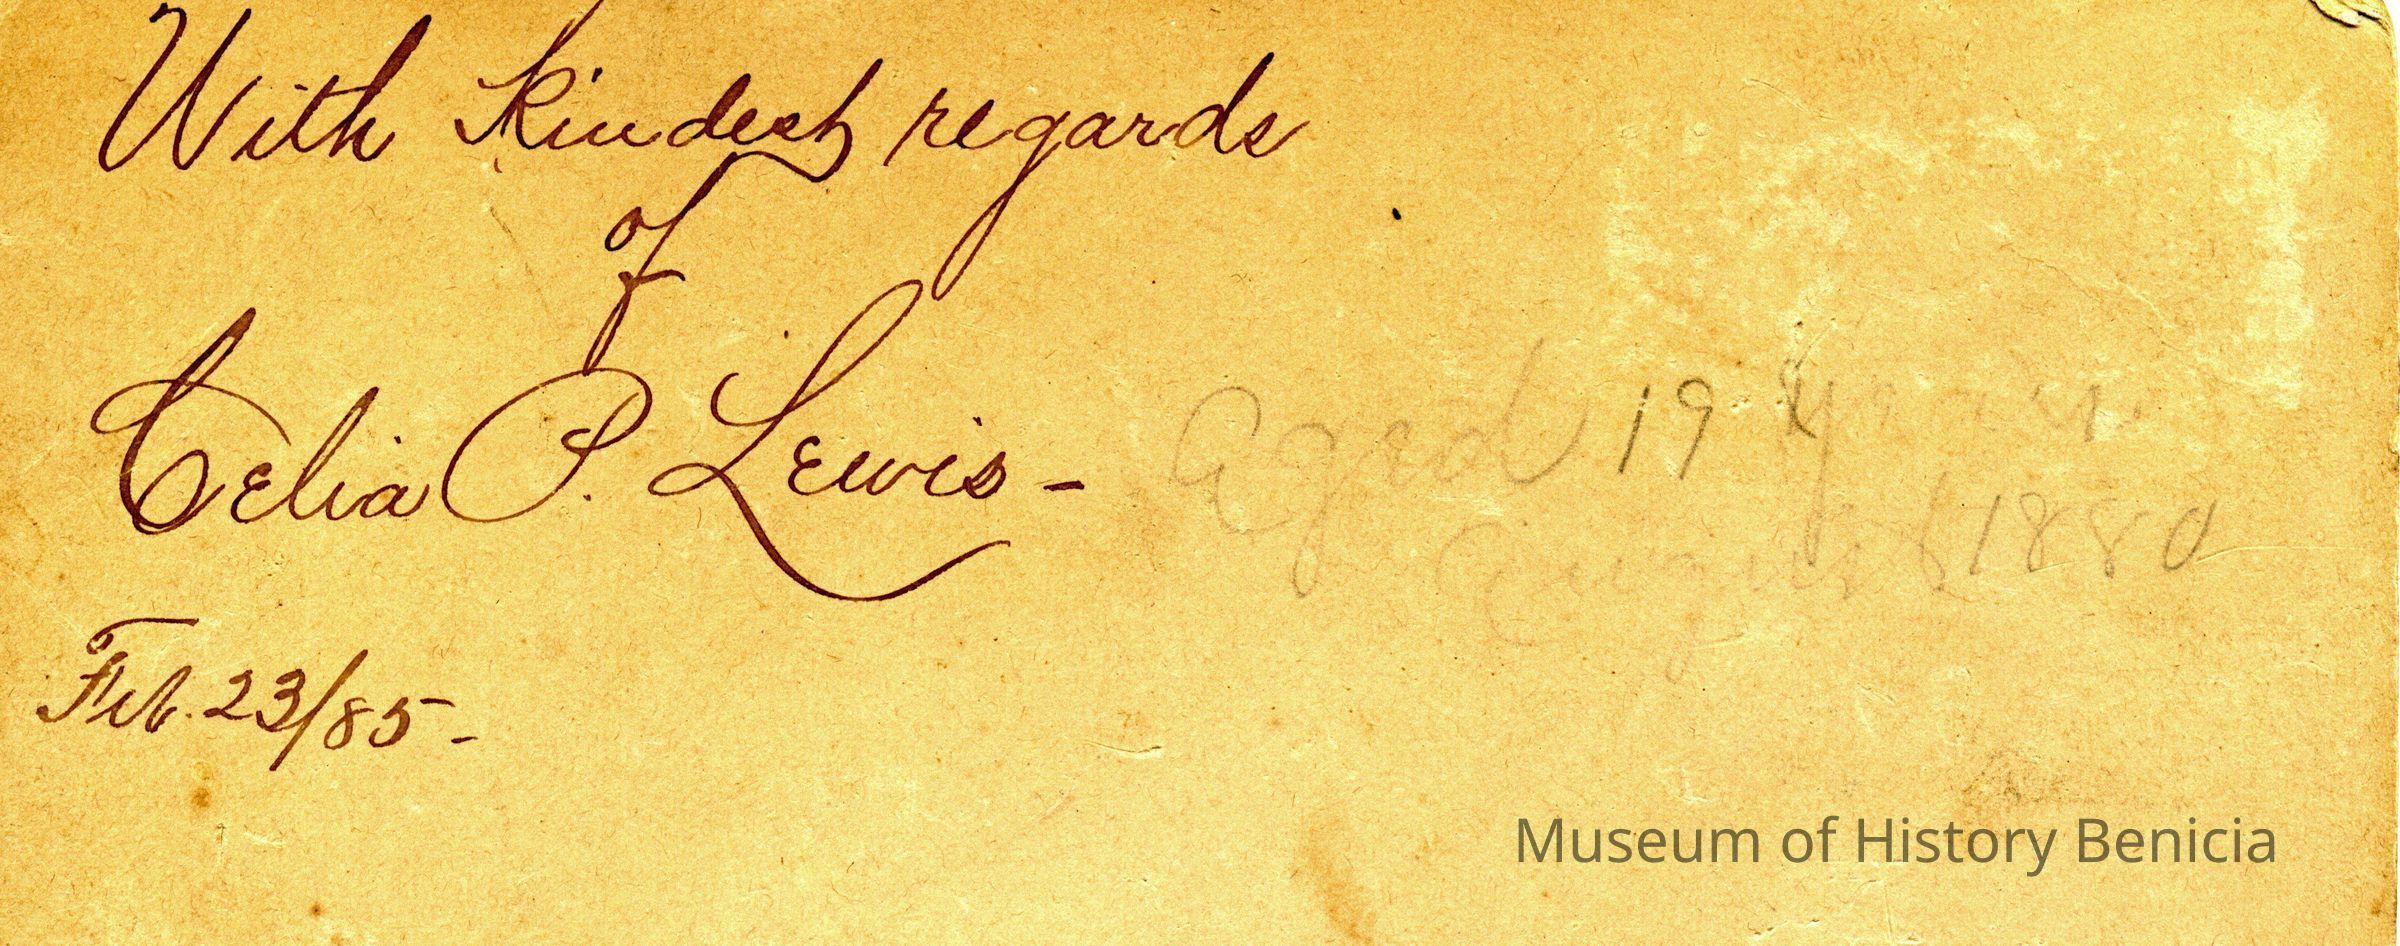 With Kindest regards
of
Celia P. Lewis -
Aged 19 Years
August 1880
Feb. 23/85 -
Museum of History Benicia